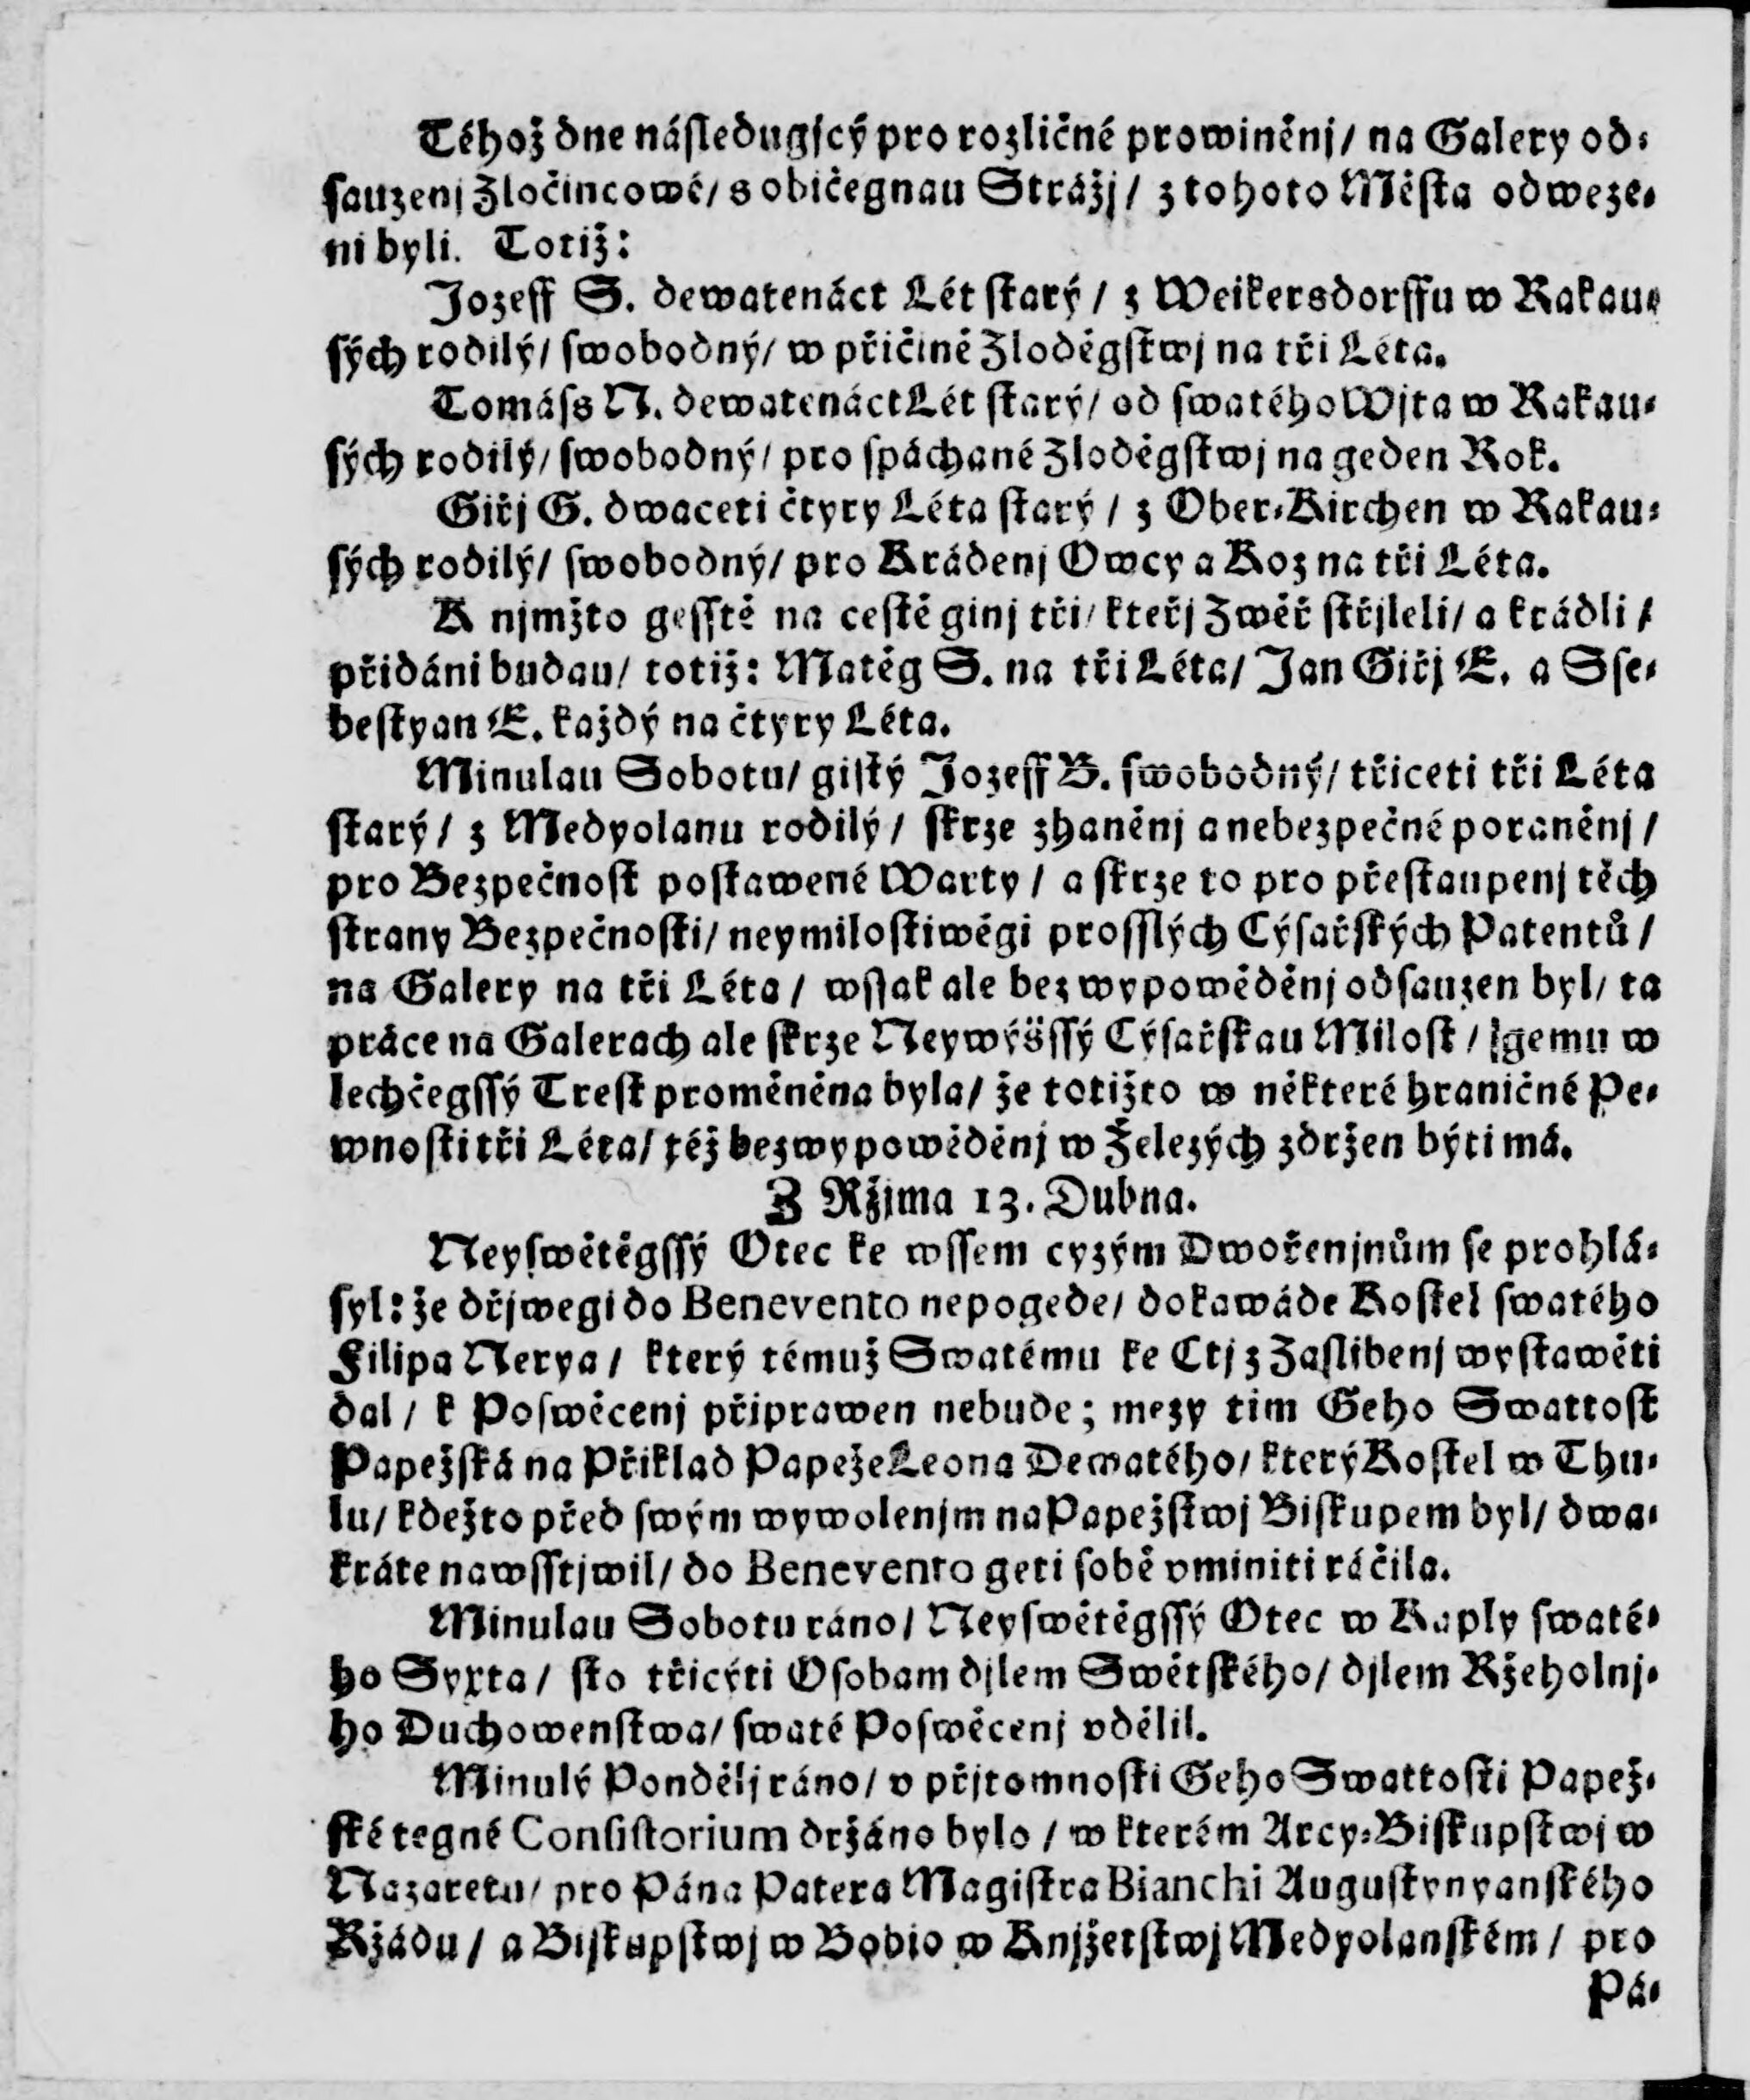 Téhož dne náſledugjcý pro rozličné prowiněnj / na Galery od⸗
ſauzenj Zločincowé / s običegnau Strážj / z tohoto Měſta odweze⸗
ni byli. Totiž:
Jozeff S. dewatenáct Lét ſtarý / z Weikersdorffu w Rakau⸗
ſých rodilý / ſwobodný / w přičině Zloděgſtwj na tři Léta.
Tomáſs N. dewatenáct Lét ſtarý / od ſwatého Wjta w Rakau⸗
ſých rodilý / ſwobodný / pro ſpáchané Zloděgſtwj na geden Rok.
Giřj G. dwaceti čtyry Léta ſtarý / z Ober⸗Kirchen w Rakau⸗
ſých rodilý / ſwobodný / pro Krádenj Owcy a Koz na tři Léta.
K njmžto geſſtě na ceſtě ginj tři / kteřj Zwěř ſtřjleli / a krádli /
přidáni budau / totiž: Matěg S. na tři Léta / Jan Giřj E. a Sſe⸗
beſtyan E. každý na čtyry Léta.
Minulau Sobotu / giſtý Jozeff B. ſwobodný / třiceti tři Léta
ſtarý / z Medyolanu rodilý / ſkrze zhaněnj a nebezpečné poraněnj /
pro Bezpečnoſt poſtawené Warty / a ſkrze to pro přeſtaupenj těch
ſtrany Bezpečnoſti / neymiloſtiwěgi proſſlých Cýſařſkých Patentů /
na Galery na tři Léta / wſſak ale bez wypowěděnj odſauzen byl / ta
práce na Galerach ale ſkrze Neywýšſſý Cýſařſkau Miloſt / gemu w
lechčegſſý Treſt proměněna byla / že totižto w některé hraničné Pe⸗
wnoſti tři Léta / též bez wypowěděnj w Železých zdržen býti má.
Z Ržjma 13. Dubna.
Neyſwětěgſſý Otec ke wſſem cyzým Dwořenjnům ſe prohlá⸗
ſyl: že dřjwegi do Benevento nepogede / dokawáde Koſtel ſwatého
Filipa Nerya / který témuž Swatému ke Ctj z Zaſlibenj wyſtawěti
dal / k Poſwěcenj připrawen nebude; mezy tim Geho Swattoſt
Papežſká na Přiklad Papeže Leona Dewatého / který Koſtel w Thu⸗
lu / kdežto před ſwým wywolenjm na Papežſtwj Biſkupem byl / dwa⸗
kráte nawſſtjwil / do Benevento geti ſobě vminiti ráčila.
Minulau Sobotu ráno / Neyſwětěgſſý Otec w Kaply ſwaté⸗
ho Syxta / ſto třicýti Oſobam djlem Swětſkého / djlem Ržeholnj⸗
ho Duchowenſtwa / ſwaté Poſwěcenj vdělil.
Minulý Pondělj ráno / v přjtomnoſti Geho Swattoſti Papež⸗
ſké tegné Conſiſtorium držáno bylo / w kterém Arcy⸗Biſkupſtwj w
Nazaretu / pro Pána Patera Magiſtra Bianchi Auguſtynyanſkého
Ržádu / a Biſkupſtwj w Bobio w Knjžetſtwj Medyolanſkém / pro
Pá⸗